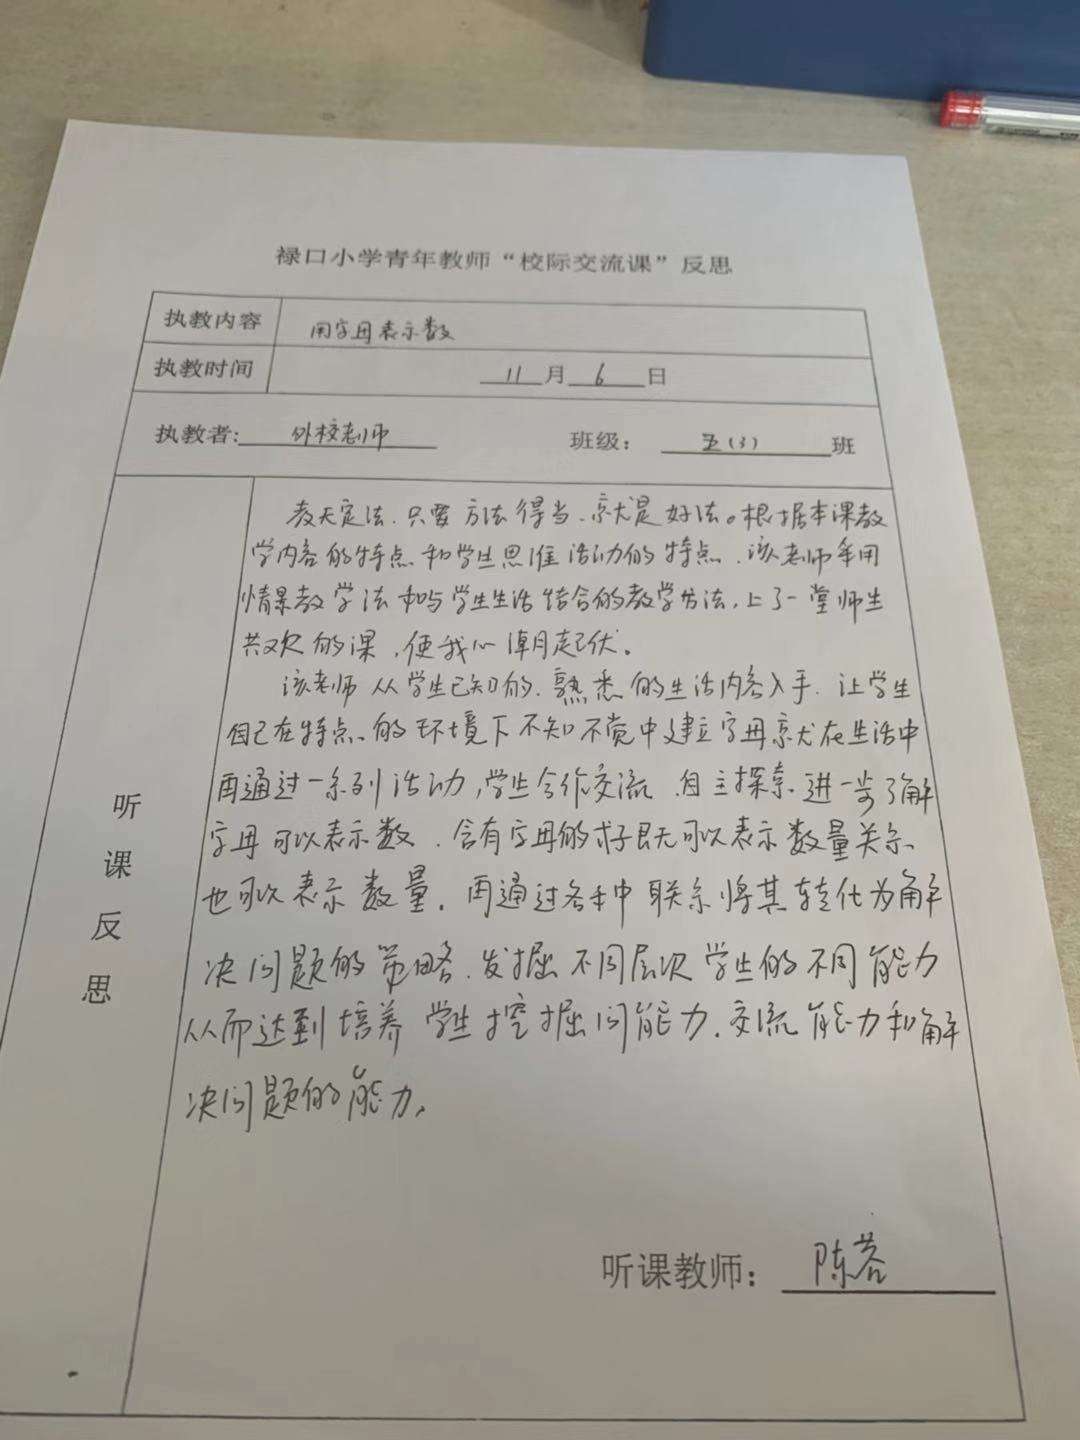 禄口小学青年教师“校际交流课”反思
执教内容 用字母表示数
执教时间 11月6日
执教者: 外校老师 班级: 五(3)班
听课反思
教无定法.只要方法得当.就是好法。根据本课教
学内容的特点和学生思维活动的特点.该老师采用
情景教学法和与学生生活结合的教学方法,上了一堂师生
共欢的课,使我心潮起伏。
该老师从学生已知的.熟悉的生活内容入手.让学生
自己在特点、的环境下不知不觉中建立字母就在生活中
再通过一系列活动,学生合作交流.自主探索.进一步了解
字母可以表示数.含有字母的式子既可以表示数量关系
也可以表示数量.再通过各种联系将其转化为解
决问题的策略.发掘不同层次学生的不同能力
从而达到培养学生挖掘问能力.交流能力和解
决问题的能力.
听课教师: 陈蓉